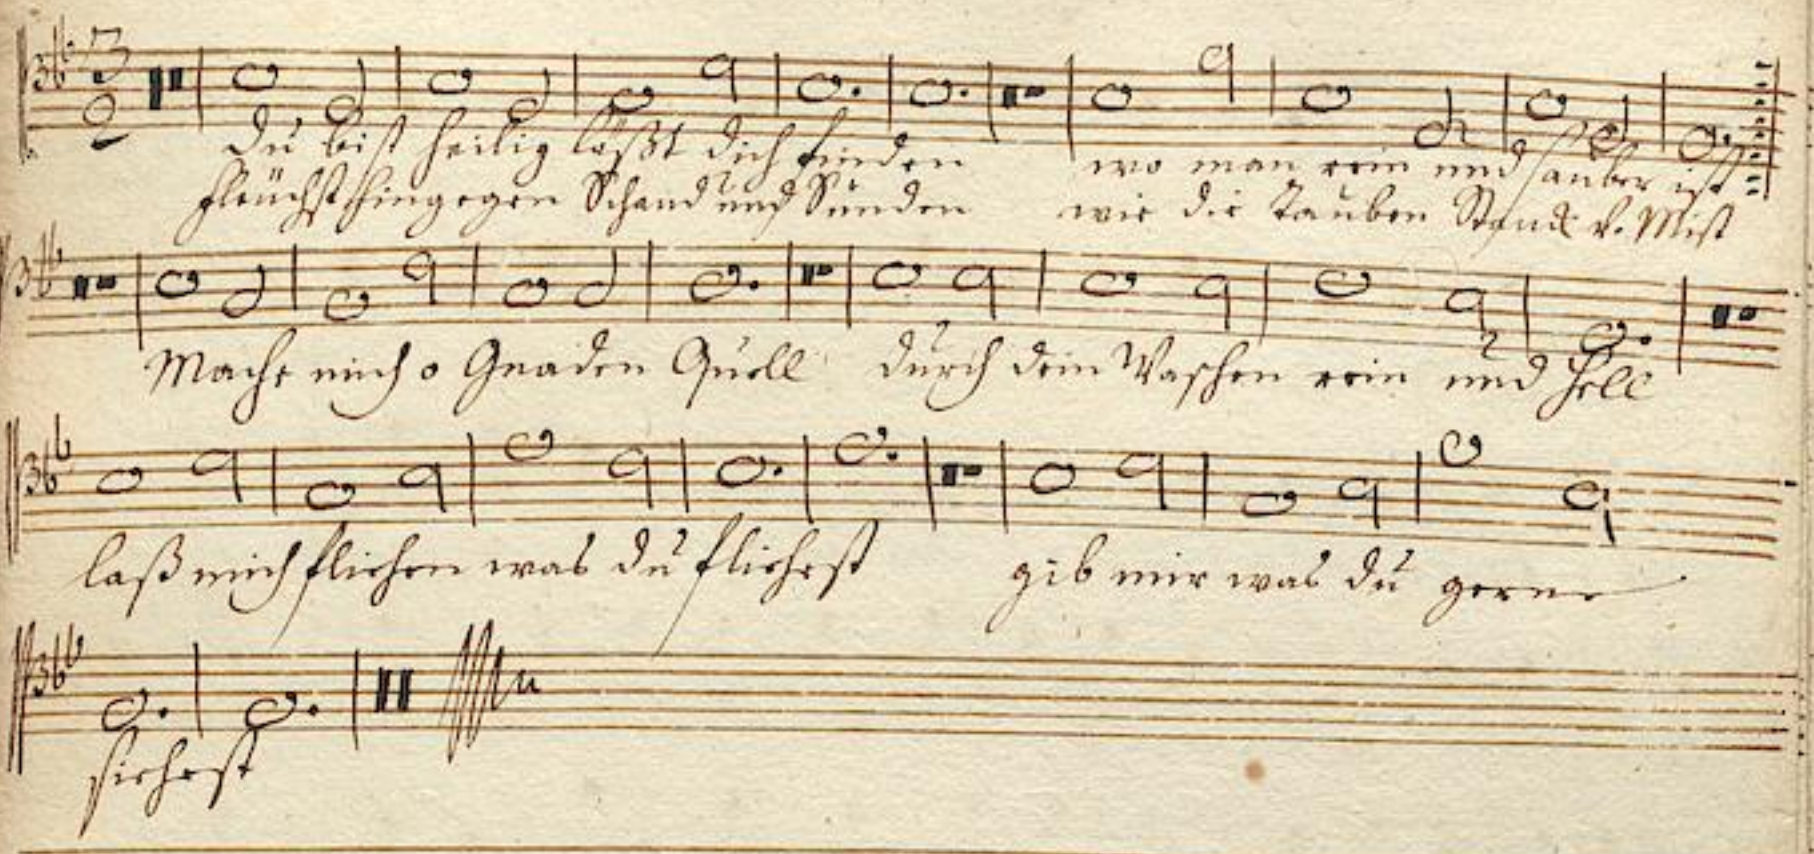 Du bist heilig laßt dich finden wo man rein und sauber ist
fleuchst hingegen Schand und Sünden wie die Tauben Stanck v. Mist
Mache mich o Gnaden Quell durch dein Waschen rein und hell
laß mich fliehen was du fliehest gib mir was du gerne
siehest